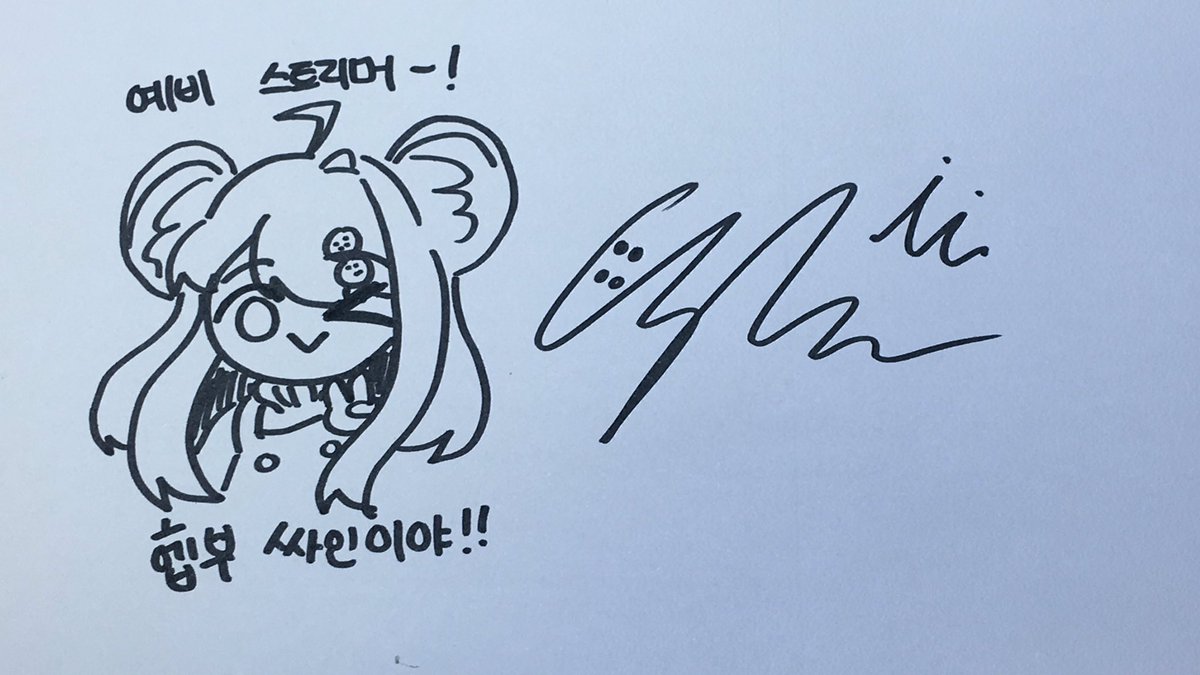 예비 스트리머~!
헵부 싸인이야!!